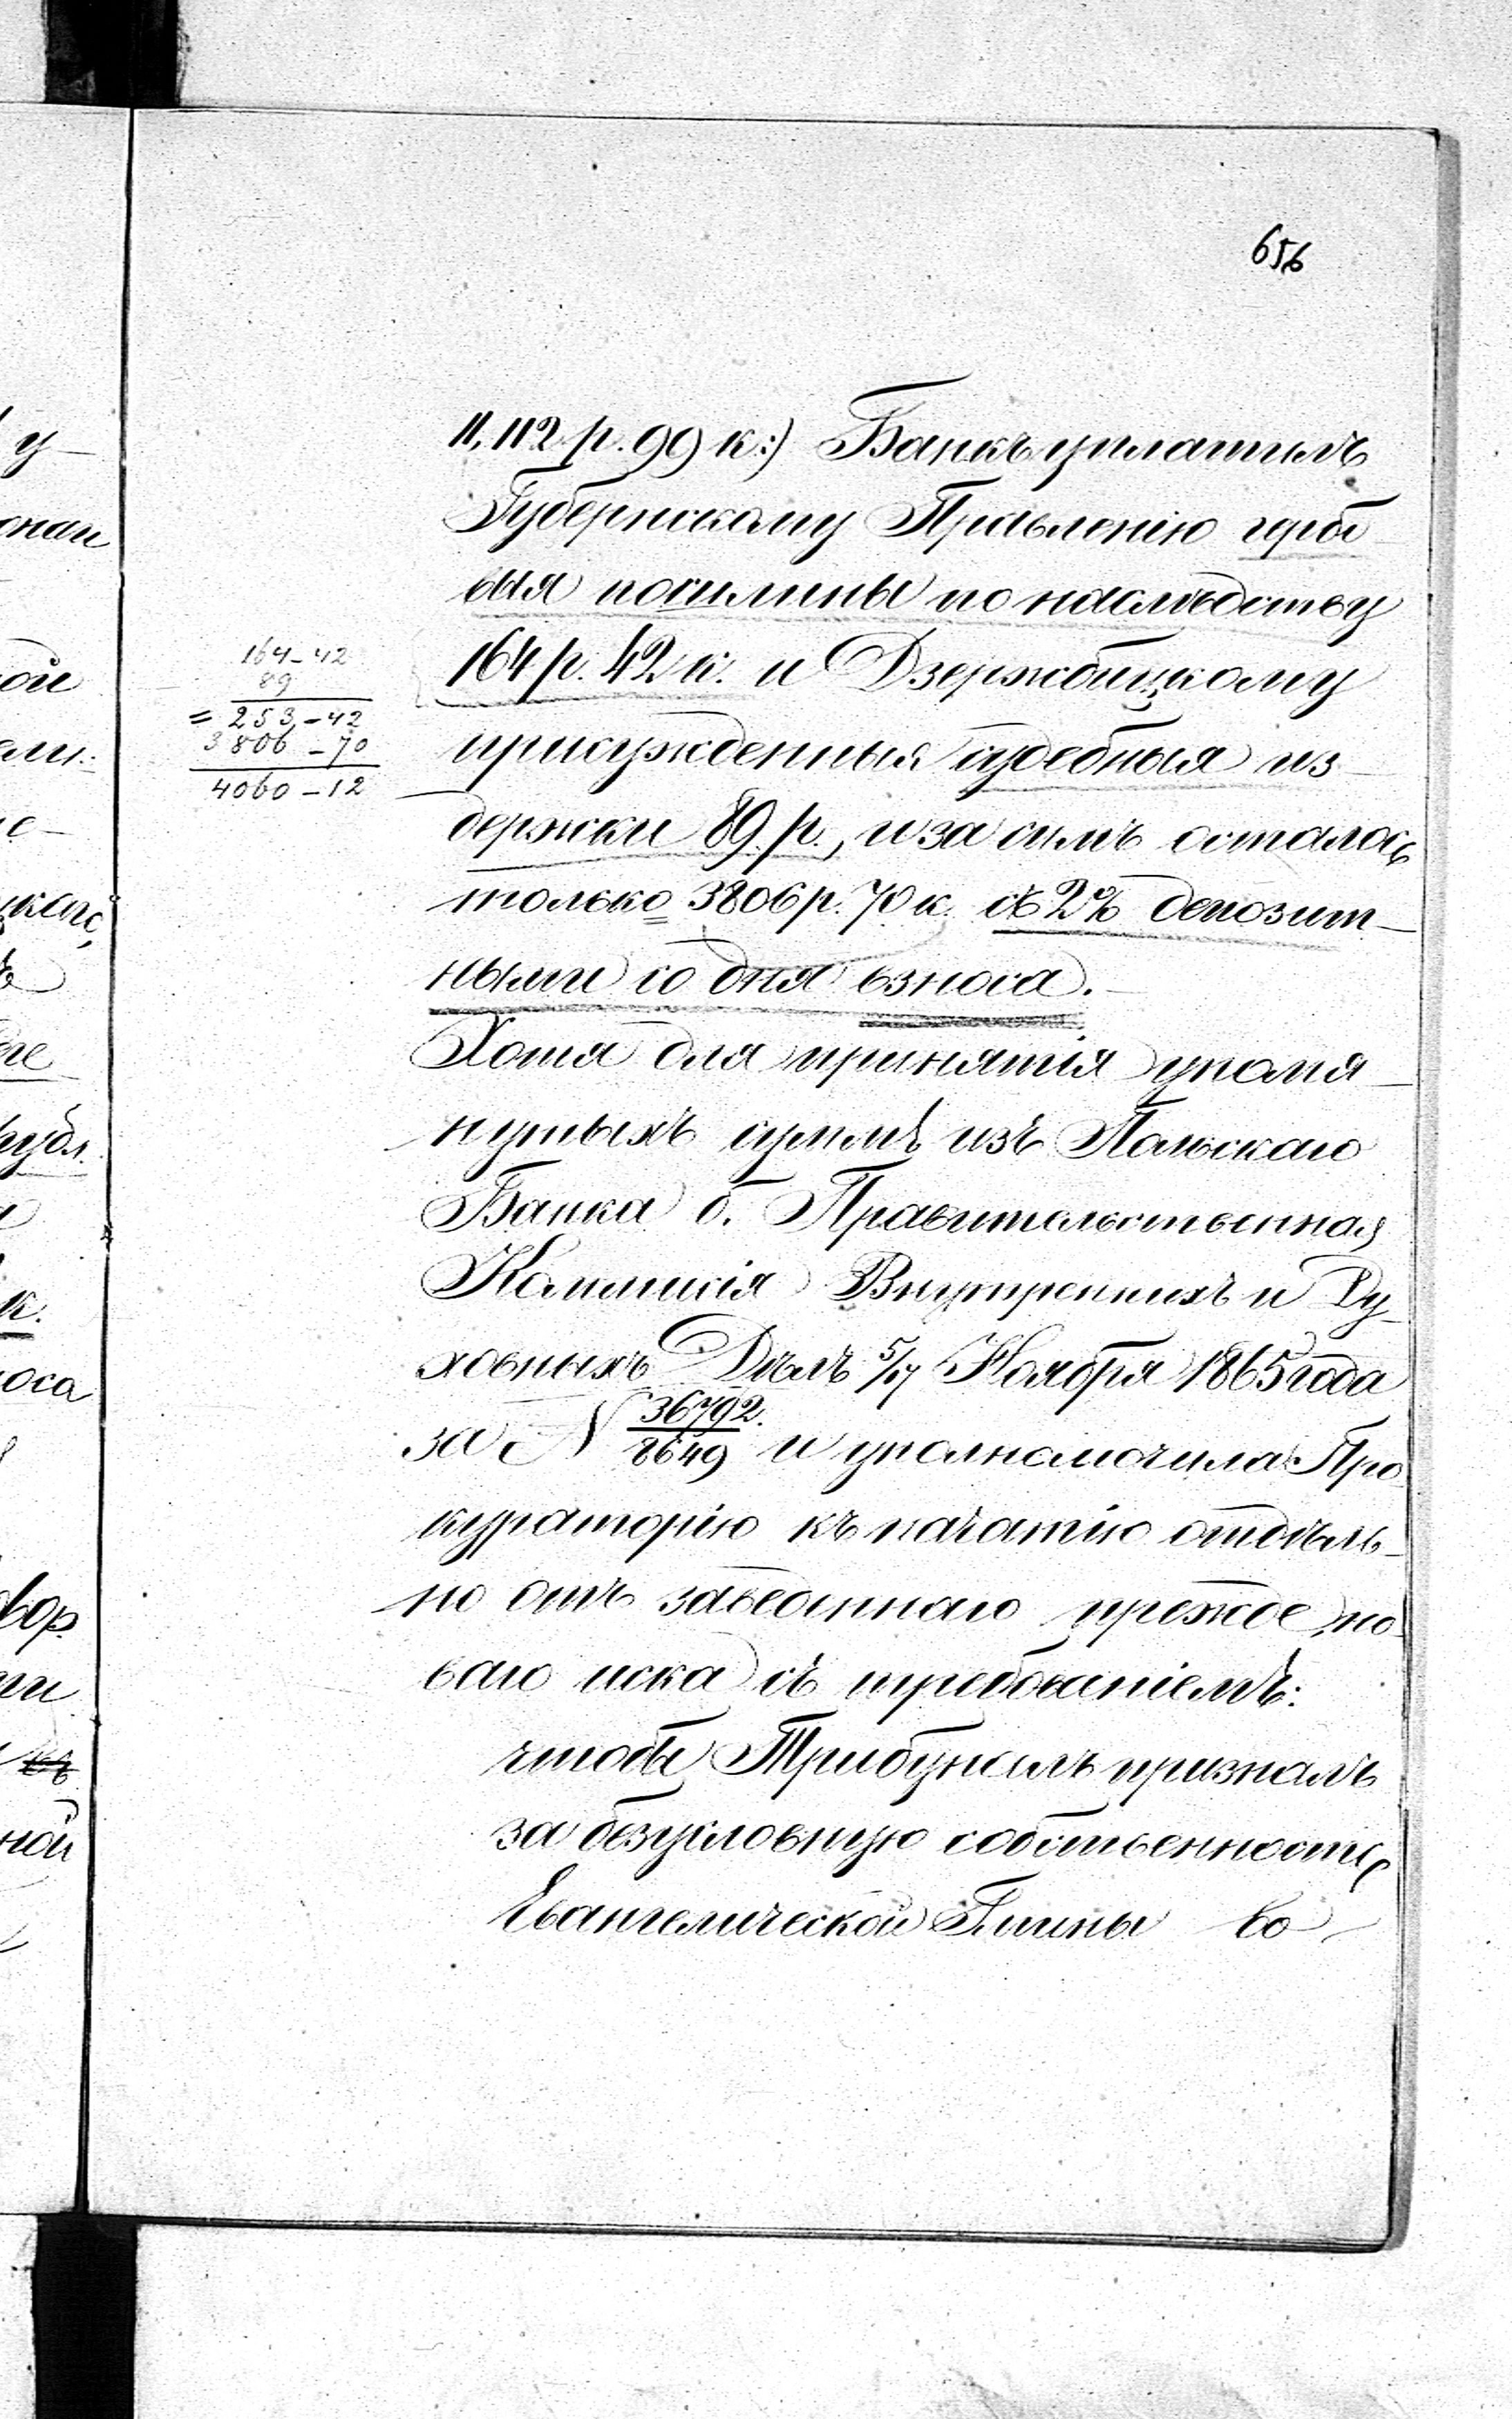 656
11,112 р. 99 к:) Банкъ уплатилъ
Губернскому Правленію гербо
выя пошлины по наслѣдству
164 р. 42 к. и Дзержбицкому
присужденныя судебныя из-
держки 89 р., и за симъ осталось
только 3806 р. 70 к. съ 2% депозит-
ными со дня взноса.
Хотя для принятія упомя-
нутыхъ суммъ изъ Польскаго
Банка б. Правительственная
Коммисія Внутреннихъ и Ду-
ховныхъ Дѣлъ 5/17 Ноября 1865 года
за N 36792./8649 и уполномочила Про
кураторію къ начатію отдѣль-
но отъ заведеннаго прежде, но-
ваго иска съ требованіемъ:
чтобы Трибуналъ призналъ
за безусловную собственность
Евангелической Гмины во
164-42
89
= 253,-42
3806-70
4060-12